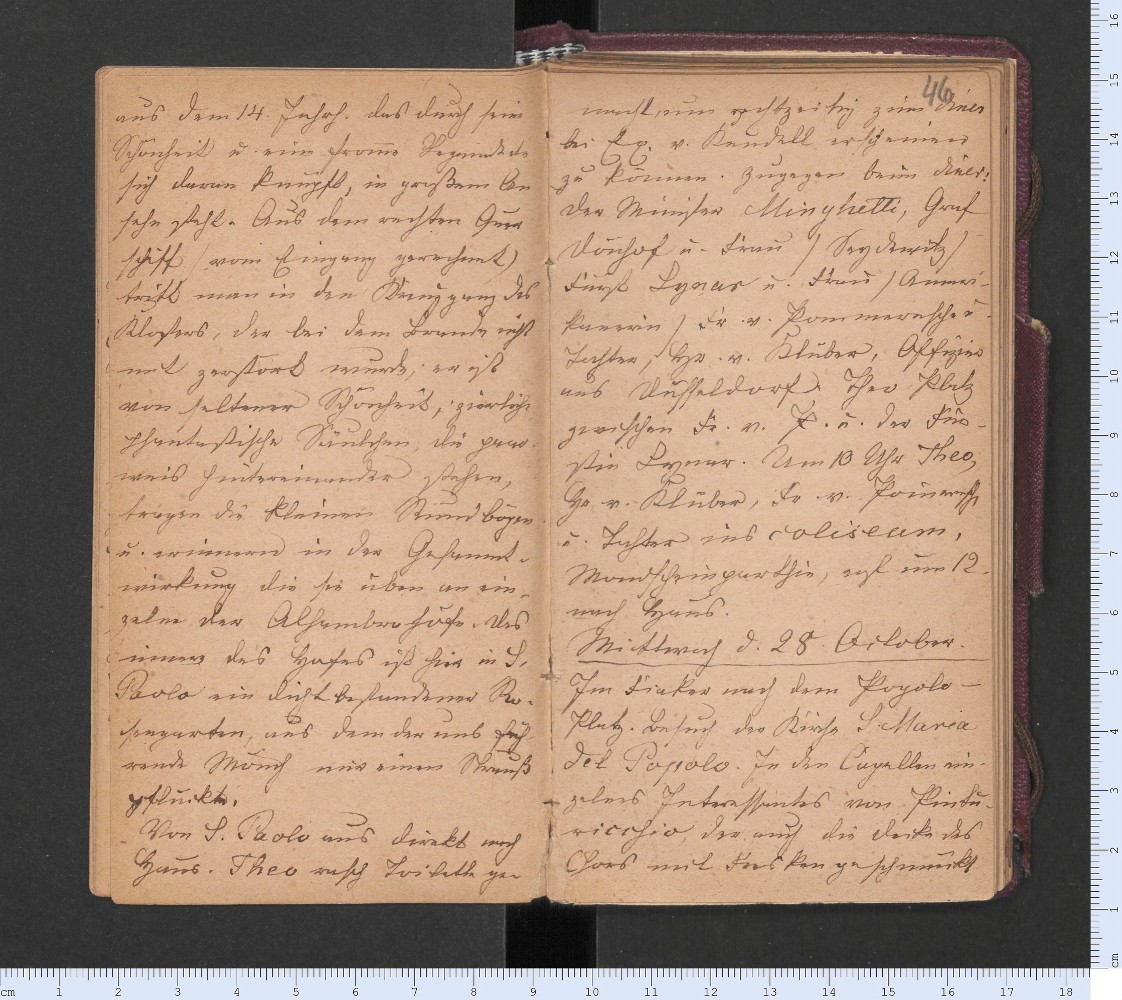 aus dem 14. Jahrh. das durch seine
Schönheit u. eine fromme Legende die
sich daran knüpft, in großem An
sehn steht. Aus dem rechten Quer
schiff (vom Eingang gerechnet)
tritt man in den Kreuzgang des
Klosters, der bei dem Brande nicht
mit zerstört wurde; er ist
von seltener Schönheit, zierliche
phantastische Säulchen, die paar-
weis hintereinander stehen,
tragen die kleinen Rundbögen
u. erinnern in der Gesammt-
wirkung die sie üben an ein-
zelne der Alhambrahöfe. Das
innere des Hofes ist hier in S.
Paolo ein dicht bestandener Ro-
sengarten, aus dem der uns füh-
rende Mönch mir einen Strauß
pflückte.
Von S. Paolo aus direkt nach
Haus. Theo rasch Toilette ge-
46
macht, um rechtzeitig zum diner
bei Ex. v. Keudell erscheinen
zu können. Zugegen beim diner:
Der Minister Minghetti, Graf
Dönhof u. Frau (Seydewitz)
Fürst Lynar u. Frau (Ameri-
kanerin) Fr. v. Pommeresche u.
Tochter, Hr. v. Klüber, Offizier
aus Düsseldorf. Theo Platz
zwischen Fr. v. P. u. der Für-
stin Lynar. Um 10 Uhr Theo,
Hr. v. Klüber, Fr. v. Pommeresche
u. Tochter ins coliseum,
Mondscheinparthie, erst um 12
nach Haus.
Mittwoch d. 28. October.
Im Fiaker nach dem Popolo-
Platz. Besuch der Kirche S. Maria
del Popolo. In den Capellen ein-
zelnes Interessantes von Pintu-
ricchio, der auch die Decke des
Chors mit Fresken geschmückt